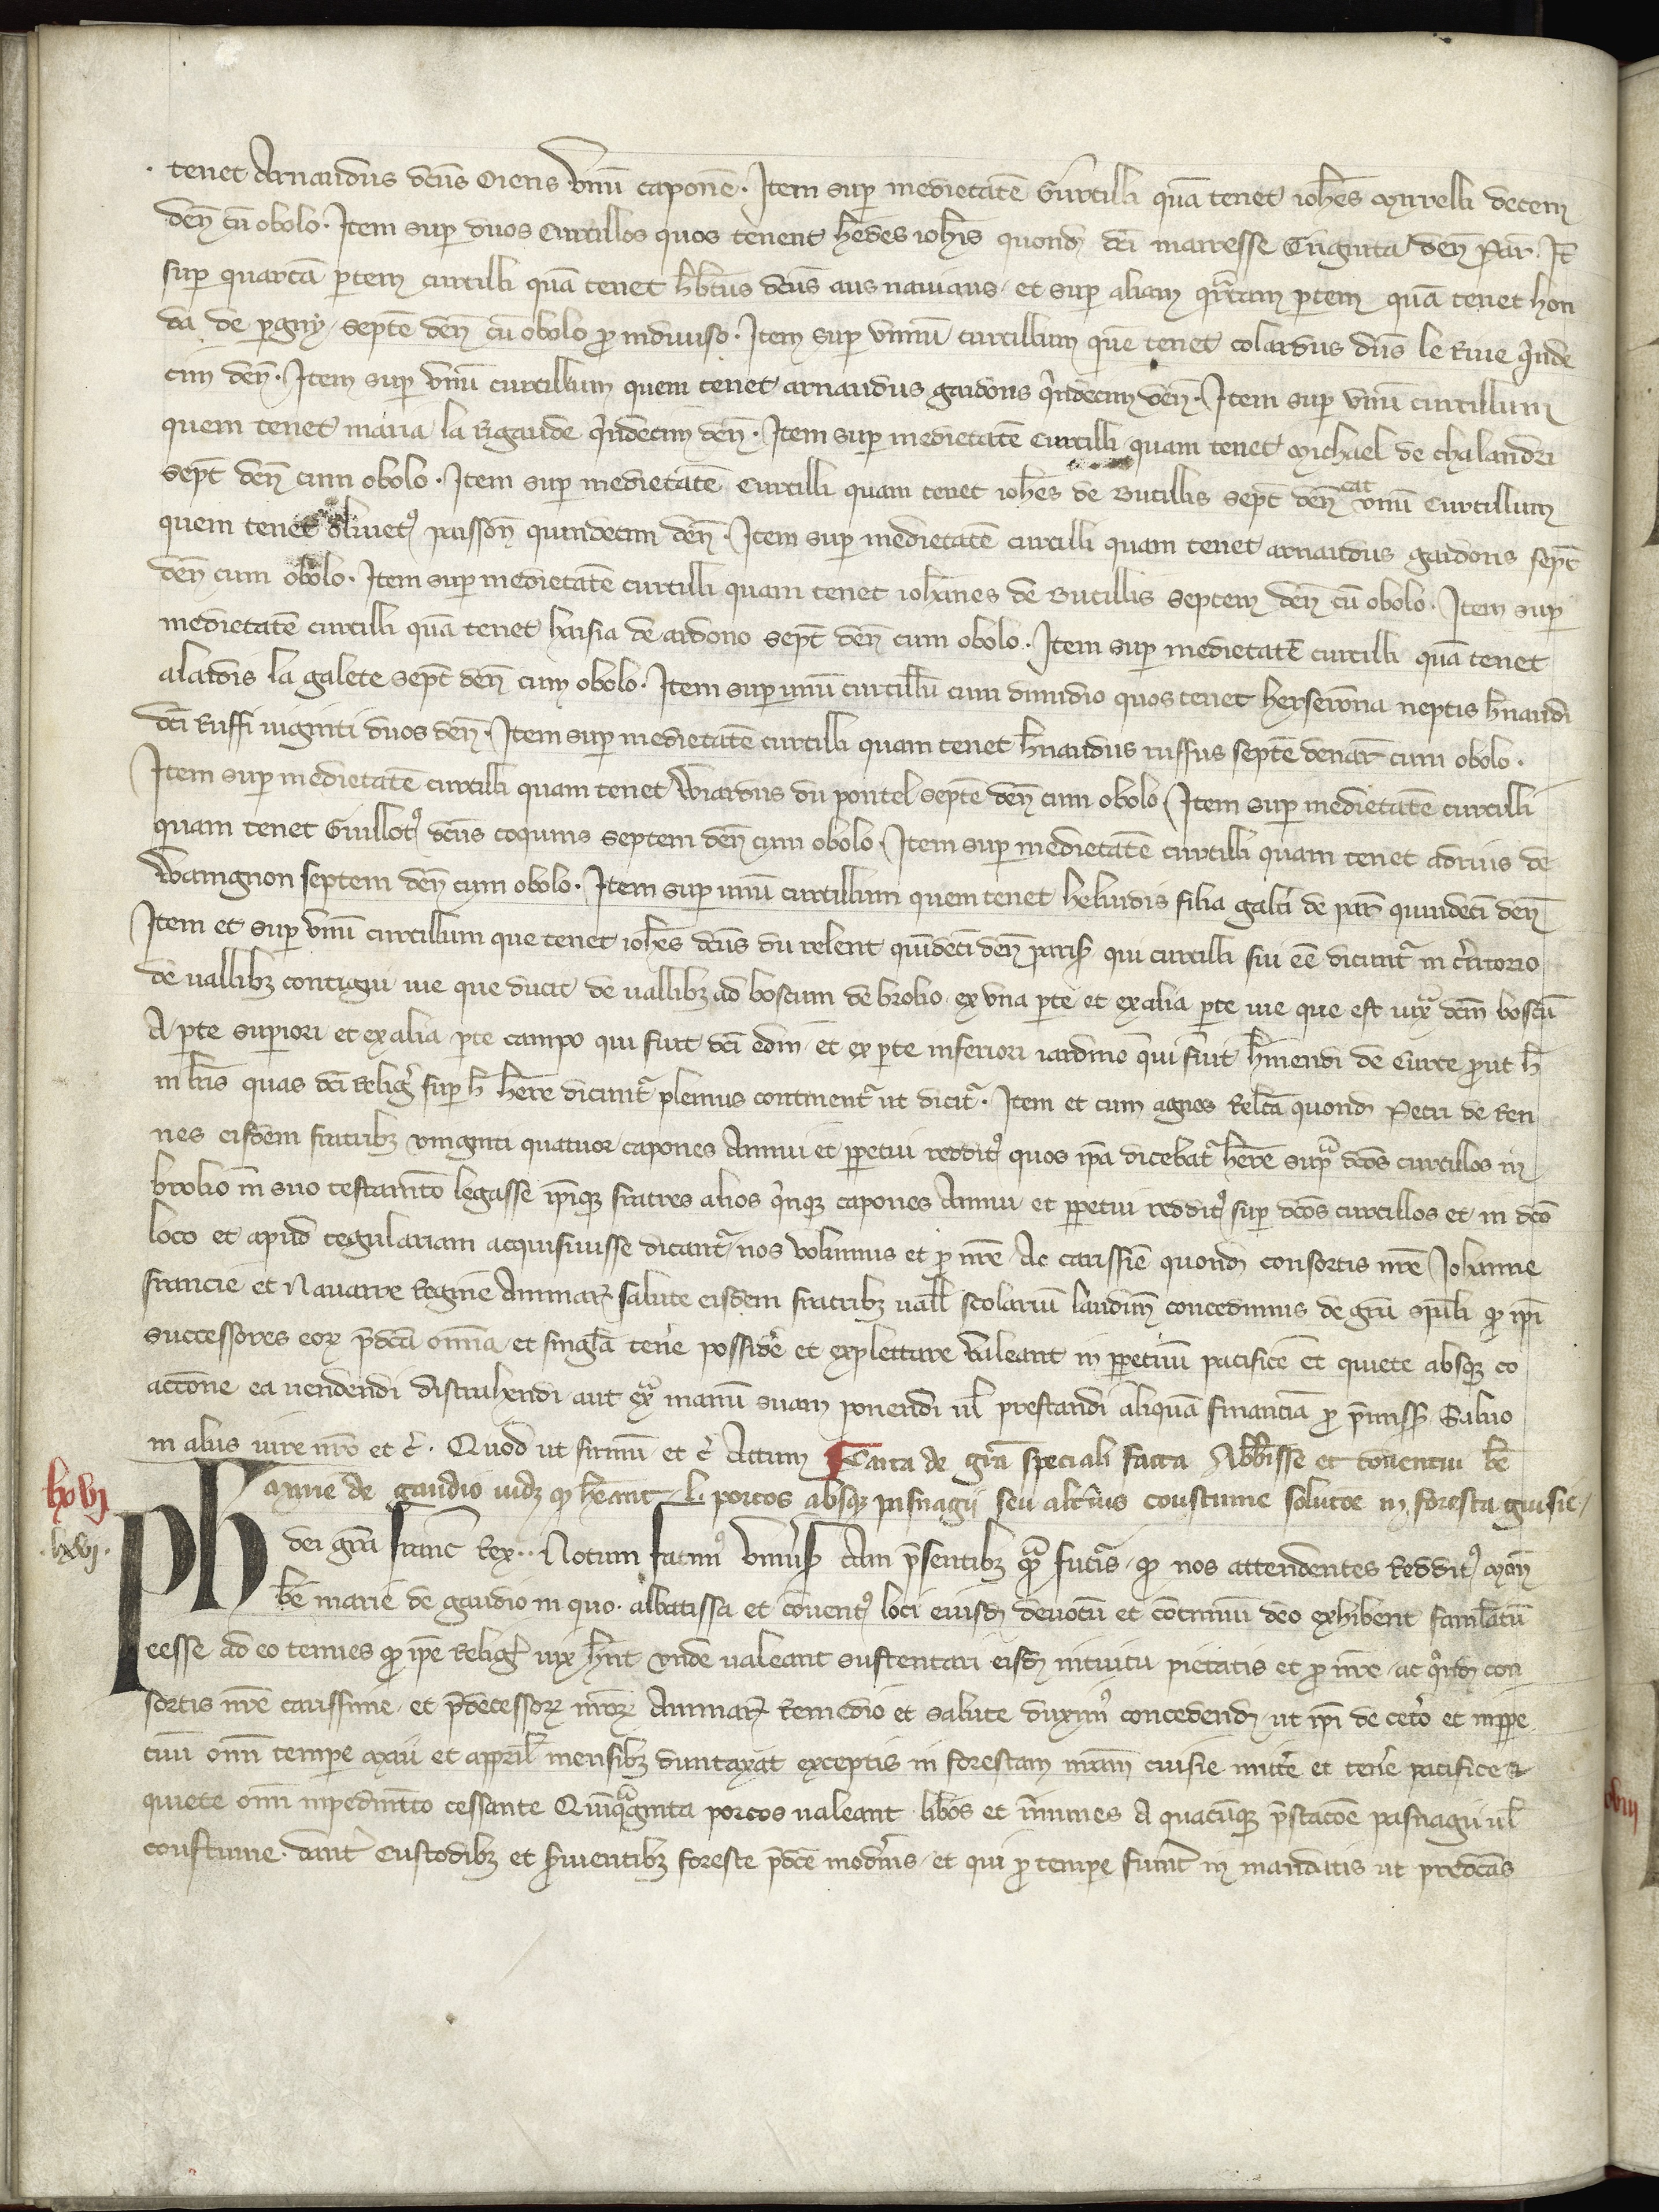 tenet Arnaudus dcūs Oiens vnū caponē. Item sup medietatē Curtilli quā tenet ioħes Myrelli decem
deñ cū obolo. Item sup duos curtillos quos tenent ħedes ioħis quond dci marresse Triginta deñ Par. It
sup quartā ptem curtilli quā tenet dcūs aus nauiaus et sup aliam qrtam ptem quā tenet hon
da de pgny septē deñ cū obolo p indiuiso. Item sup vnnū curtillum quē tenet colardus dūs le Riue qinde
cim deñ. Item sup vnū curtillum quem tenet arnaudus gaidons qindecim deñ. Item sup vnū curtillum
quem tenet maria la rigaude qindecim deñ. Item sup medietatē curtilli quam tenet Michael de chalandri
sept deñ cum obolo. Item sup medietatē Curtilli quam tenet ioħes de Butillis sept deñ vnū Curtillum
quem tenet oliuetꝰ paissoñ quindecim deñ. Item sup medietatē curtilli quam tenet arnaudus gaidons sept
deñ cum obolo. Item sup medietatē curtilli quam tenet ioħannes de Butillis septem deñ cū obolo. Item sup
medietatē curtilli quā tenet haisia de ardono sept deñ cum obolo. Item sup medietatē curtilli quā tenet
alaidis la galete sept deñ cum obolo. Item sup unū curtillū cum dimidio quos tenet herserōna neptis ħnaudi
dci Ruffi uiginti duos deñ. Item sup medietatē curtilli quam tenet ħnaudus ruffus septē denar cum obolo.
Item sup medietatē curtilli quam tenet Wiardus du pontel septē deñ cum obolo Item sup medietatē curtilli
quam tenet Guillotꝰ dcūs coquus septem deñ cum obolo. Item sup medietatē curtilli quam tenet adiuis de
Wamgnon septem deñ cum obolo. Item sup unū curtillum quem tenet heluidis filia galti de par quindeci deñ
Item et sup vnū curtillum que tenet ioħes dcūs du relent quīdeci deñ parisꝫ qui curtilli siti eē dicunt in titorio
de uallibꝫ contigui uie que ducit de uallibꝫ ad boscum de brolio ex vna pte et ex alia pte uie que est iux dcm boscū
A pte supiori et ex alia pte campo qui fuit dci edm et ex pte inferiori iardino qui fuit ħmendi de Curte put ħ
in lris quas dci religꝫ sup ħ ħere dicunt plenius continent ut dicit. Item et cum agnes Relcta quond Petri de Ren
nes eisdem fratribꝫ viginti quatuor capones Annui et ppetui redditꝰ quos ipa dicebat ħere sup dcos curtillos in
brolio in suo testamto legasse ipiqꝫ fratres alios qinqꝫ capones Annui et ppetui redditꝰ sup dcos curtillos et in dco
loco et apud tegulariam acquisiuisse dicant nos volumus et p nre Ac carissie quond consortis nre Iohanne
francie et Nauarre Regine Animarꝫ salute eisdem fratribꝫ uall scolariū laudunꝫ concedimus de gra spali qp ipi
successores eorꝫ pdcā omnia et singla tene posside et explectare valeant in ppetuū pacifice et quiete absqꝫ co
accione ea uendendi distrahendi aut ex manū suam ponendi ul prestandi aliquā financiā p pmissis Saluo
in aliis iure nro et c. Quod ut firmū et c Actum Carta de gra speciali facta Abbisse et conuentui be
Marie de gaudio uidꝫ qp ħeant L porcos absqꝫ pasnagii seu altius coustume solucoe in foresta guisie
lxvj
.lxvj.
Ph dei gra franc Rex.. Notum facimꝰ vniūsis tam psentibꝫ q futis qp nos attendentes Redditꝰ Moñ
be marie de gaudio in quo abbatissa et conuentꝰ loci eiusd deuotū et continuū deo exhibent famlatū
eesse ad eo tenues qp ipe religꝫ uix ħnt vnde ualeant sustentari eisd intuitu pietatis et p nre ac qond con
sortis nre carissime et pdecessorꝫ nrorꝫ Animarꝫ Remedio et salute duximꝰ concedend ut ipi de ceto et inppe
tuū omi tempe Maii et april mensibꝫ duntaxat exceptis in forestam nram cuisie mitte et tene pacifice et
quiete omi inpedimto cessante Quiqginta porcos ualeant libos et imunes A quacūqꝫ pstacoe pasnagii ul
coustume. dant Custodibꝫ et suientibꝫ foreste pdce modnis et qui p tempe fuint in mandatis ut predcas